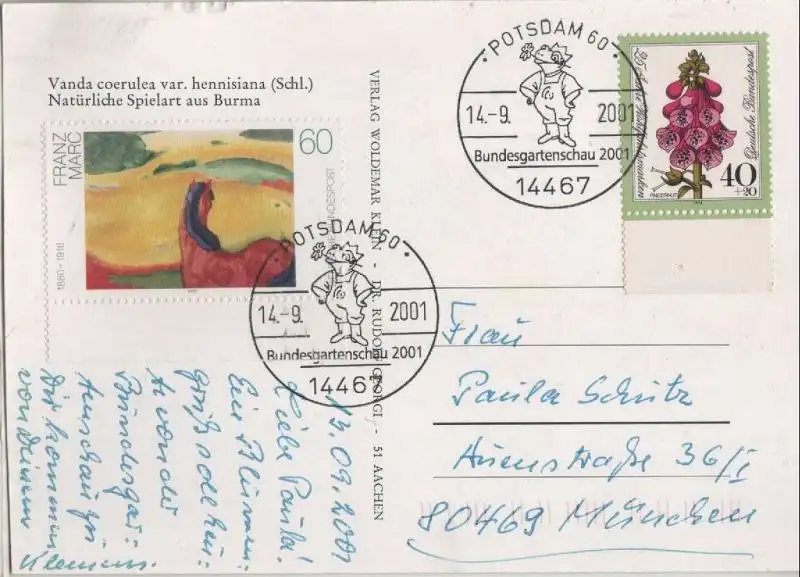 Vanda coerulea var. hennisiana (Schl.)
Natürliche Spielart aus Burma
FRANZ
MARC
60
1880-1916
DEUTSCHE BUNDESPOST
VERLAG WOLDEMAR KLEIN - DR. RUDOLF GEORGI - 51 AACHEN
POTSDAM 60
14.-9. 2001
Bundesgartenschau 2001
14467
POTSDAM 60
14.-9. 2001
Bundesgartenschau 2001
14467
Deutsche Bundespost
40
+20
FINGERHUT
13.09.2001
Liebe Paula!
Ein Blumen-
gruß soll heu-
te von der
Bundesgar-
tenschau zu
Dir kommen
von Deinem
Klemens.
Frau
Paula Schütz
Auenstraße 36/I
80469 München